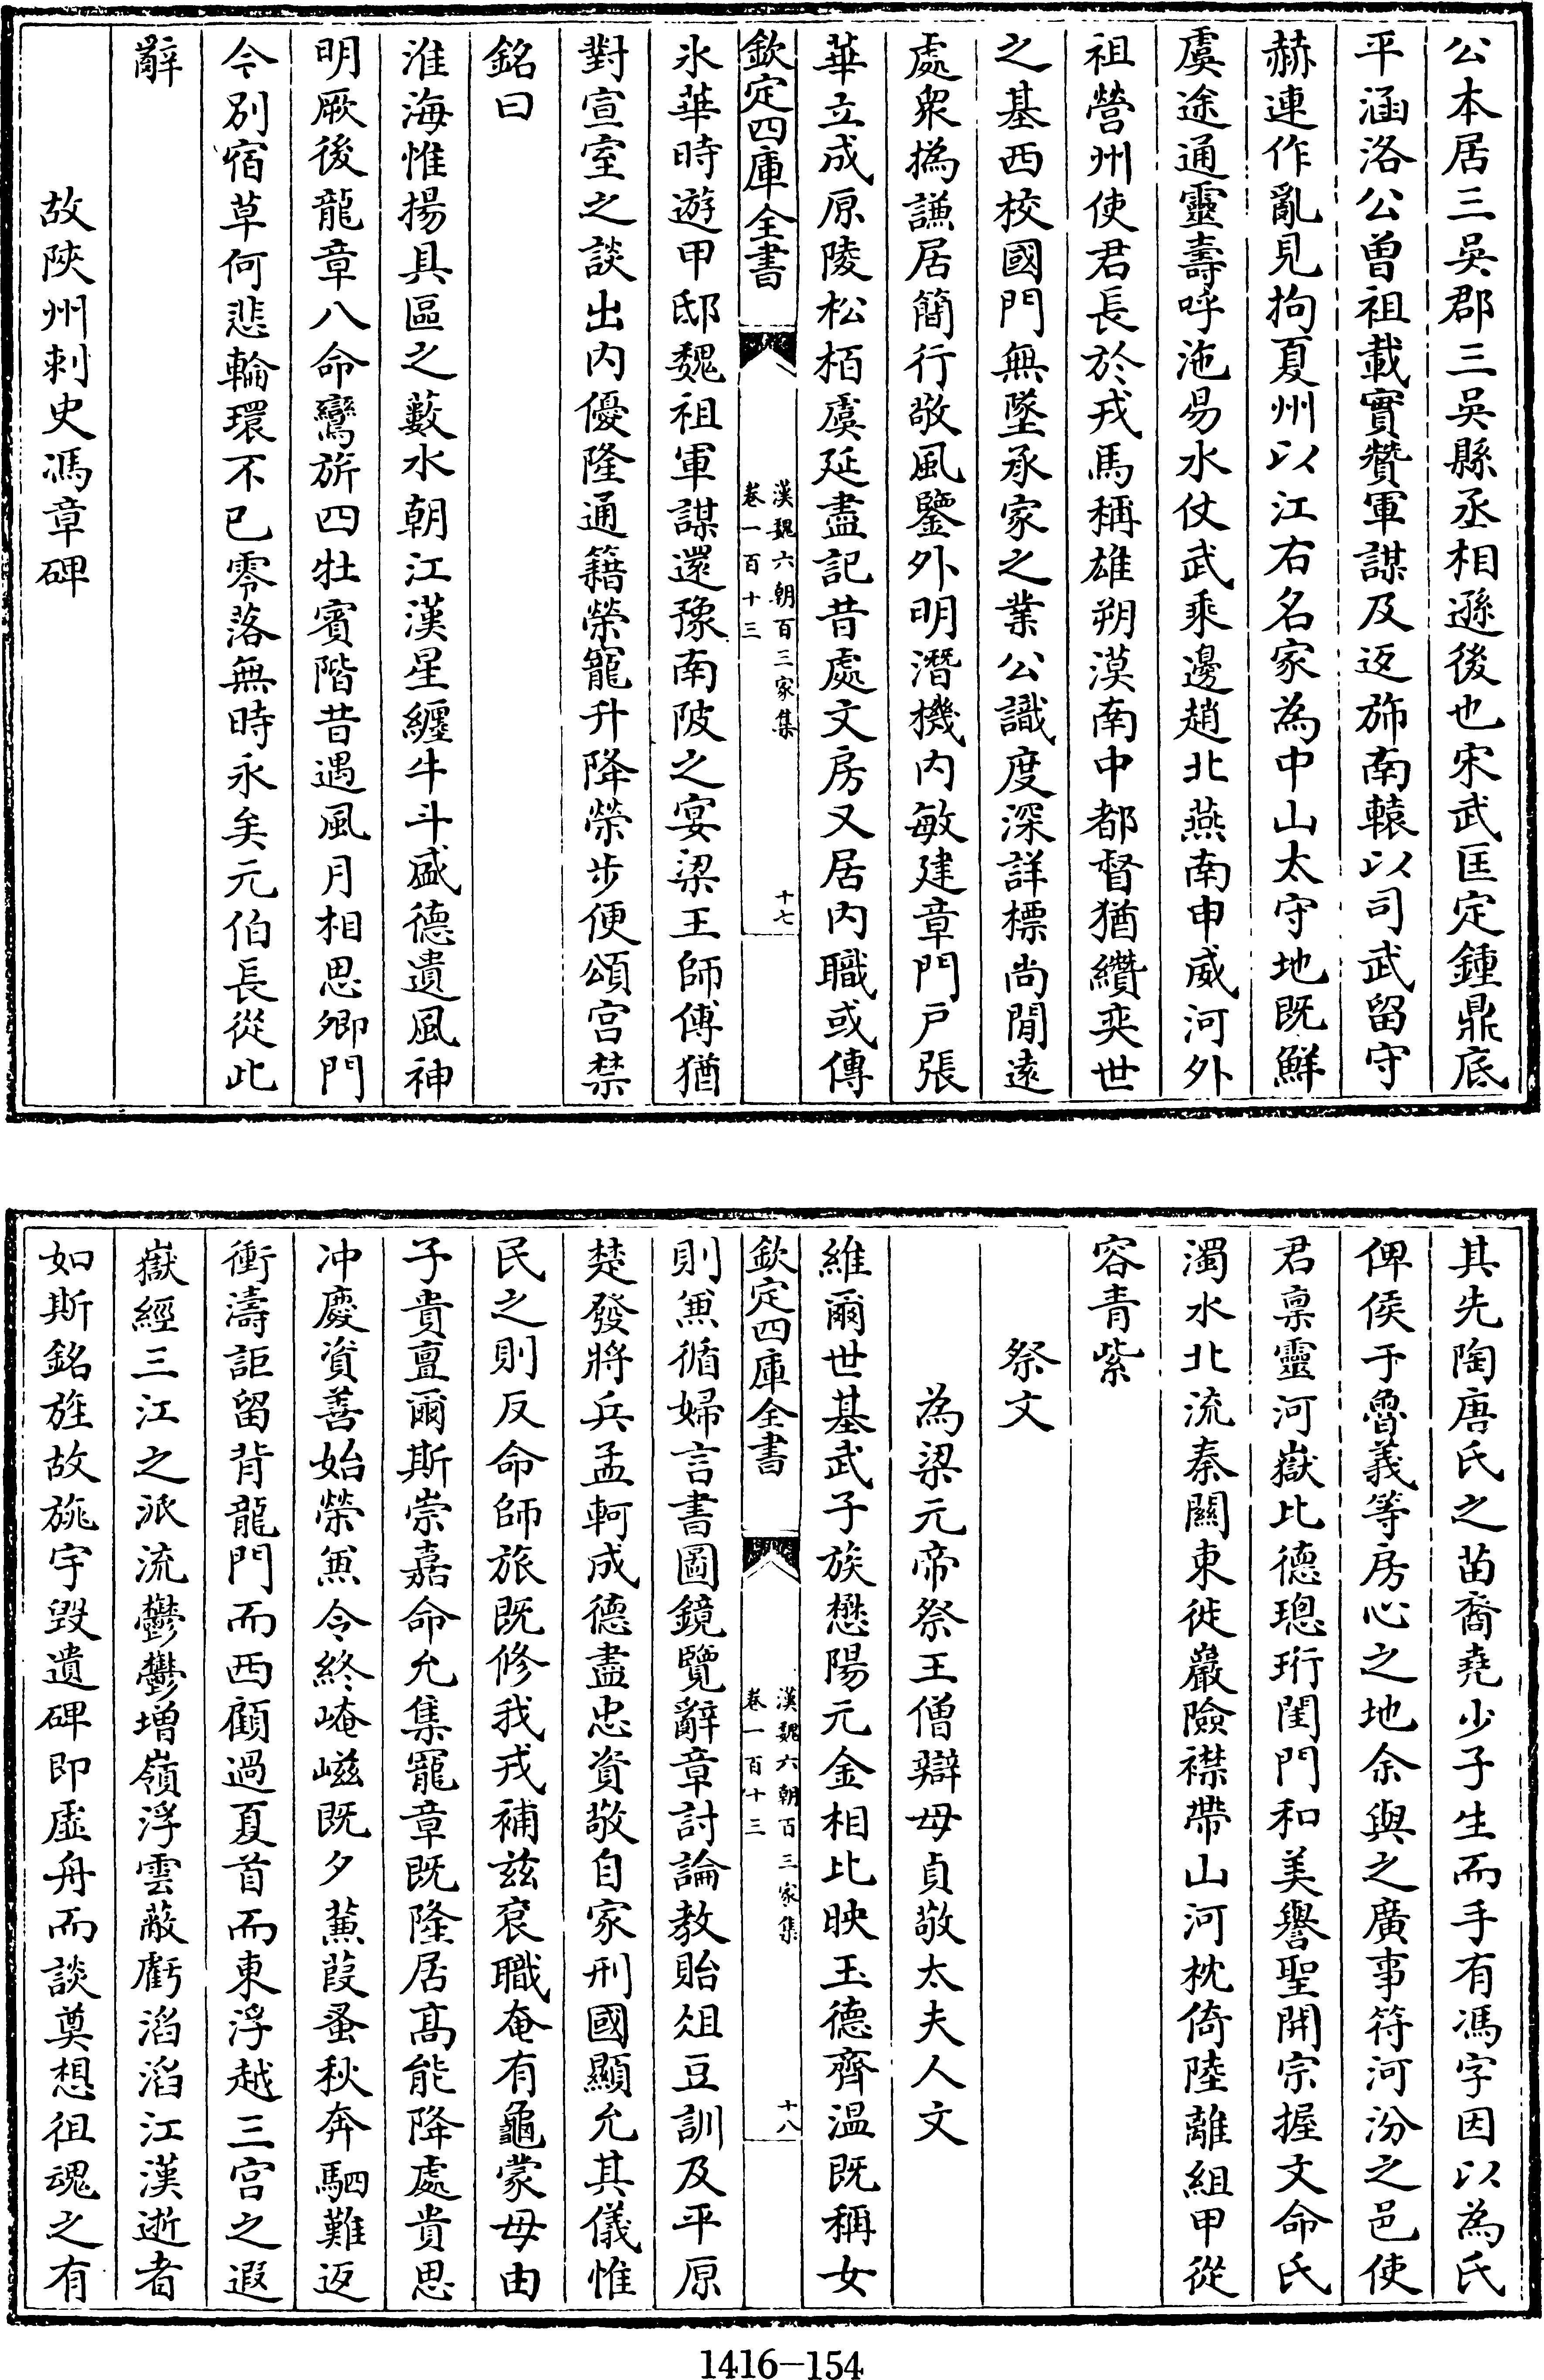 公本居三吳郡三吳縣丞相遜後也宋武匡定鍾鼎底
平涵洛公曽祖載實贊軍謀及返斾南轅以司武留守
赫連作亂見拘夏州以江右名家為中山太守地既鮮
虞途通靈壽呼沲易水仗武乘邊趙北燕南申威河外
祖營州使君長於戎馬稱雄朔漠南中都督猶纘奕世
之基西校國門無墜承家之業公識度深詳標尚閒逺
處衆撝謙居簡行敬風鑒外明潛機内敏建章門戸張
華立成原陵松栢虞延盡記昔處文房又居内職或傳
欽定四庫全書
漢魏六朝百三家集
卷一百十三
十七
氷華時遊甲邸魏祖軍謀還豫南陂之宴梁王師傅猶
對宣室之談出内優隆通籍榮寵升降榮步便頌宫禁
銘曰
淮海惟揚具區之藪水朝江漢星纏牛斗盛德遺風神
明厥後龍章八命鸞旂四牡賓階昔遇風月相思卿門
今別宿草何悲輪環不已零落無時永矣元伯長從此
辭
故陜州刺史馮章碑
其先陶唐氏之苗裔堯少子生而手有馮字因以為氏
俾侯于魯義等房心之地余與之廣事符河汾之邑使
君稟靈河嶽比德璁珩閨門和美譽聖開宗握文命氏
濁水北流秦關東徙巖險襟帶山河枕倚陸離組甲從
容青紫
祭文
為梁元帝祭王僧辯母貞敬太夫人文
維爾世基武子族懋陽元金相比映玉德齊温既稱女
欽定四庫全書
漢魏六朝百三家集
卷一百十三
十八
則兼循婦言書圖鏡覽辭章討論教貽俎豆訓及平原
楚發將兵孟軻成德盡忠資敬自家刑國顯允其儀惟
民之則反命師旅既修我戎補兹袞職奄有龜蒙母由
子貴亶爾斯崇嘉命允集寵章既隆居髙能降處貴思
冲慶資善始榮兼令終崦嵫既夕蒹葭蚤秋奔駟難返
衝濤詎留背龍門而西顧過夏首而東浮越三宫之遐
嶽經三江之派流鬱鬱增嶺浮雲蔽虧滔滔江漢逝者
如斯銘旌故旐宇毁遺碑即虛舟而談奠想徂魂之有
1416—154